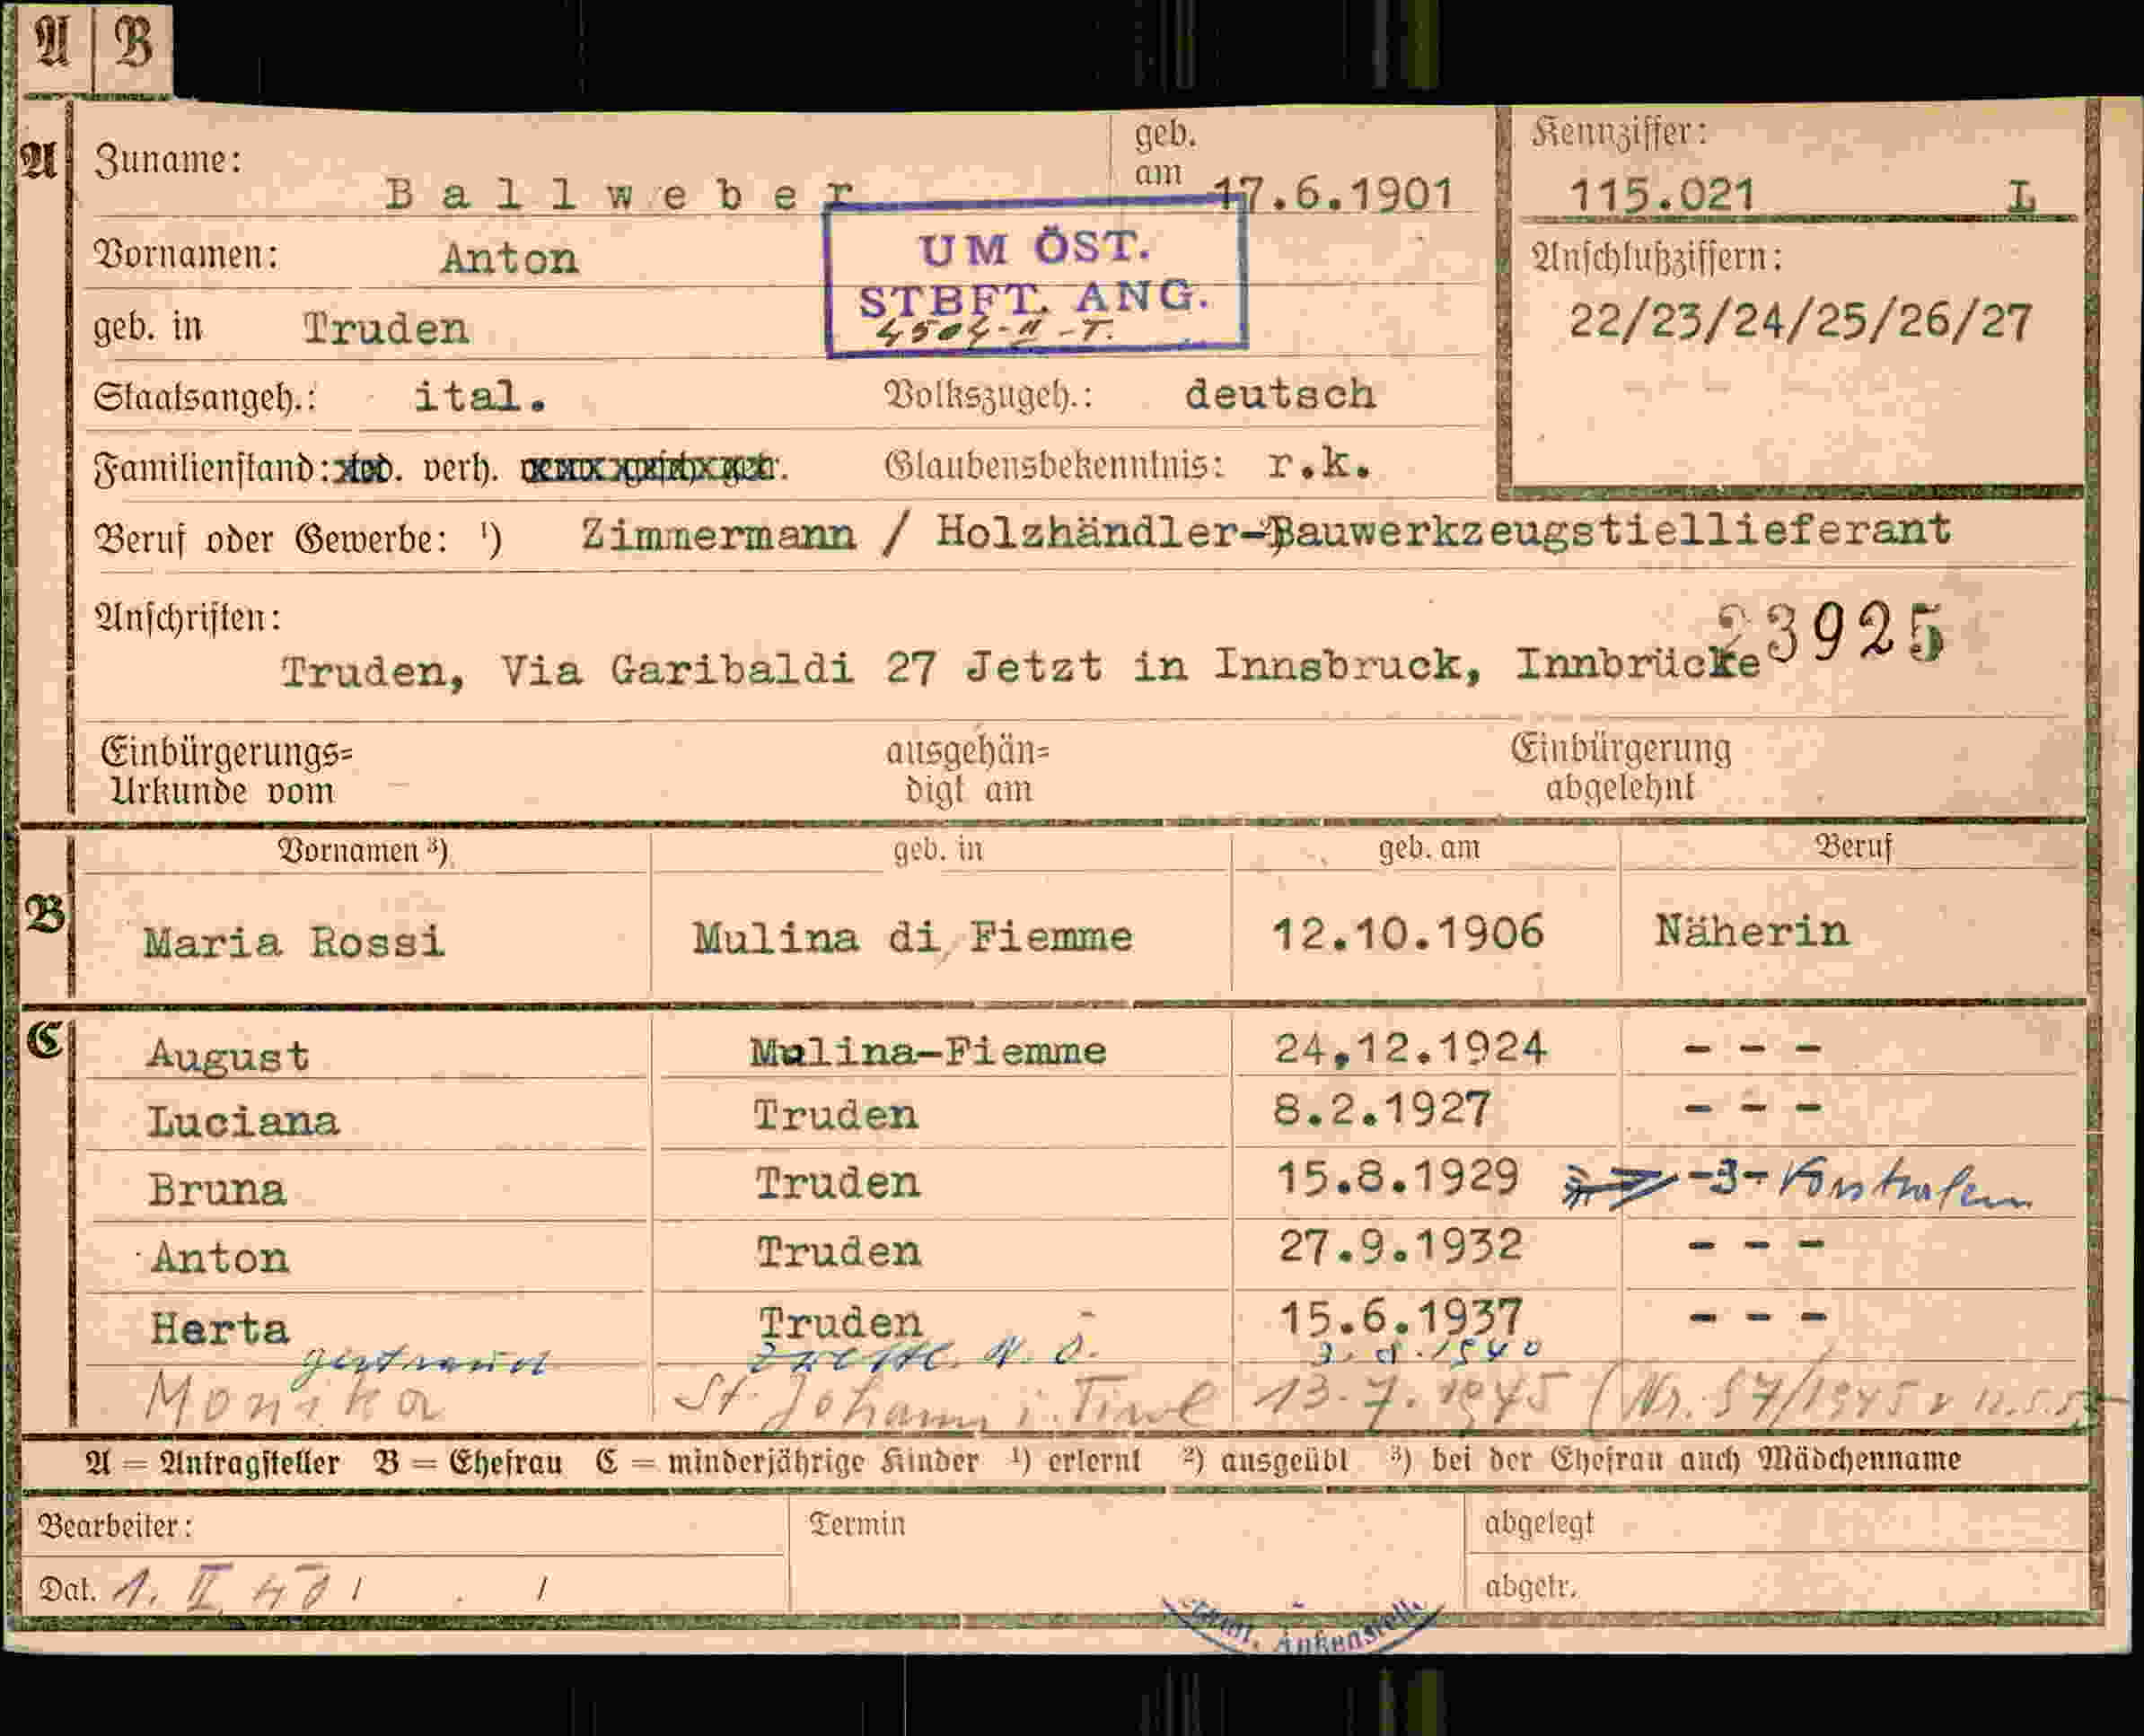 A B
A Zuname: Ballweber geb. am 17.6.1901
Kennziffer: 115.021 L
Vornamen: Anton
UM ÖST.
STBFT. ANG.
geb. in Truden
Anschlußziffern:
22/23/24/25/26/27
Staatsangeh.: ital. Volkszugeh.: deutsch
Familienstand: verh. Glaubensbekenntnis: r.k.
Beruf oder Gewerbe: ¹) Zimmermann / Holzhändler-Bauwerkzeugstiellieferant
Anschriften: 23925
Truden, Via Garibaldi 27 Jetzt in Innsbruck, Innbrücke
Einbürgerungs= ausgehän= Einbürgerung
Urkunde vom digt am abgelehnt
Vornamen ³) geb. in geb. am Beruf
B Maria Rossi Mulina di Fiemme 12.10.1906 Näherin
C August Mulina-Fiemme 24.12.1924 - - -
Luciana Truden 8.2.1927 - - -
Bruna Truden 15.8.1929 -3-
Anton Truden 27.9.1932 - - -
Herta Truden 15.6.1937 - - -
Gertraud Zwettl N. D. 3.8.1940
Monika St. Johann i. Tirol 13.7.1945 (Nr. 57/1945
A = Antragsteller B = Ehefrau C = minderjährige Kinder ¹) erlernt ²) ausgeübt ³) bei der Ehefrau auch Mädchenname
Bearbeiter: Termin abgelegt
Dat. 1. II 40 / . / abgetr.